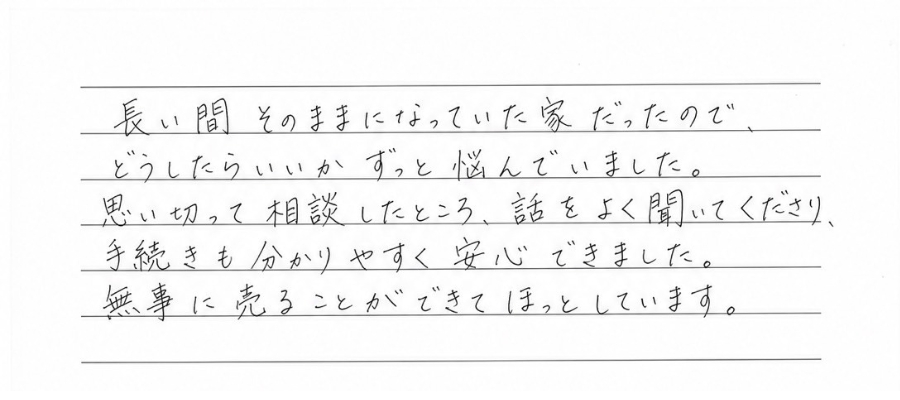 長い間そのままになっていた家だったので、
どうしたらいいかずっと悩んでいました。
思い切って相談したところ、話をよく聞いてくださり、
手続きも分かりやすく安心できました。
無事に売ることができてほっとしています。